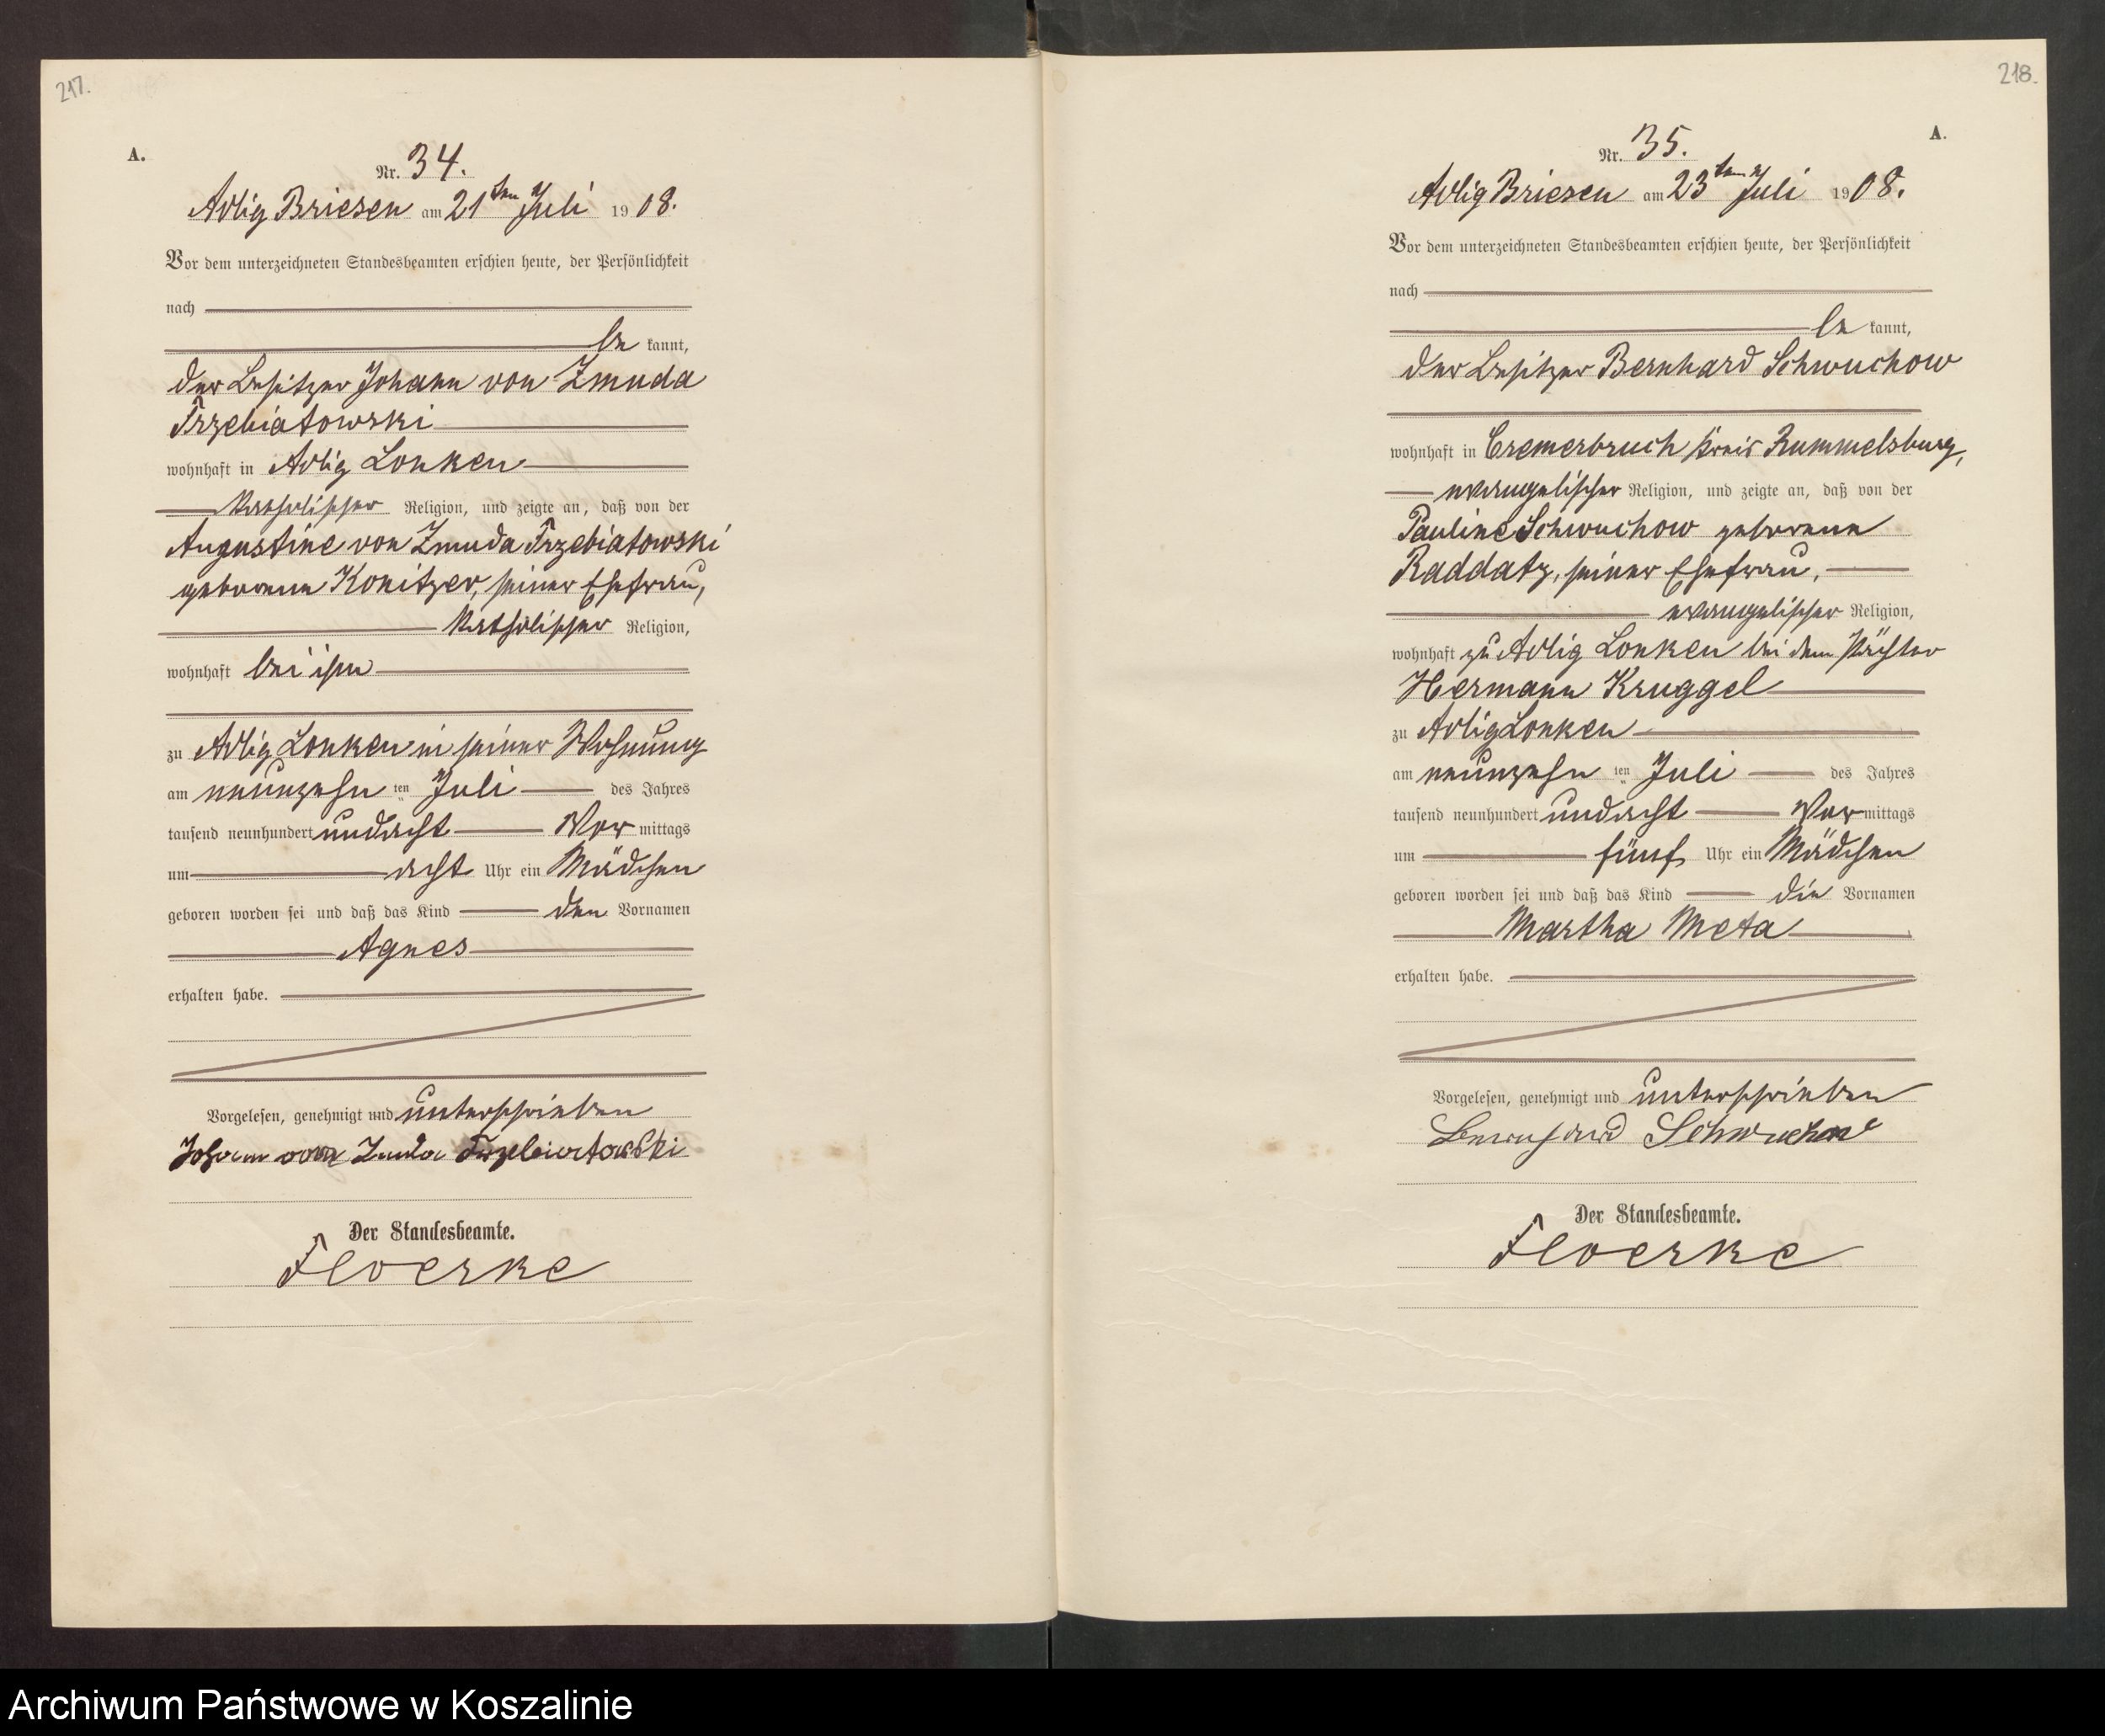 217.
A.
Nr. 34.
Adlig Briesen am 21ten Juli 1908.
Vor dem unterzeichneten Standesbeamten erschien heute, der Persönlichkeit
nach
be kannt,
der Besitzer Johann von Zmuda
Trzebiatowski
wohnhaft in Adlig Lonken
katholischer Religion, und zeigte an, daß von der
Augustine von Zmuda Trzebiatowski
geborene Konitzer, seiner Ehefrau,
katholischer Religion,
wohnhaft bei ihm
zu Adlig Lonken in seiner Wohnung
am neunzehn ten Juli des Jahres
tausend neunhundert undacht Vor mittags
um acht Uhr ein Mädchen
geboren worden sei und daß das Kind den Vornamen
Agnes
erhalten habe.
Vorgelesen, genehmigt und unterschrieben
Johann von Zmuda Trzebiatowski
Der Standesbeamte.
Floerke
218.
A.
Nr. 35.
Adlig Briesen am 23ten Juli 1908.
Vor dem unterzeichneten Standesbeamten erschien heute, der Persönlichkeit
nach
be kannt,
der Besitzer Bernhard Schwuchow
wohnhaft in Cremerbruch Kreis Rummelsburg,
evangelischer Religion, und zeigte an, daß von der
Pauline Schwuchow geborene
Raddatz, seiner Ehefrau,
evangelischer Religion,
wohnhaft zu Adlig Lonken bei dem Pächter
Hermann Kruggel
zu Adlig Lonken
am neunzehn ten Juli des Jahres
tausend neunhundert undacht Vor mittags
um fünf Uhr ein Mädchen
geboren worden sei und daß das Kind die Vornamen
Martha Meta
erhalten habe.
Vorgelesen, genehmigt und unterschrieben
Bernhard Schwuchow
Der Standesbeamte.
Floerke
Archiwum Państwowe w Koszalinie